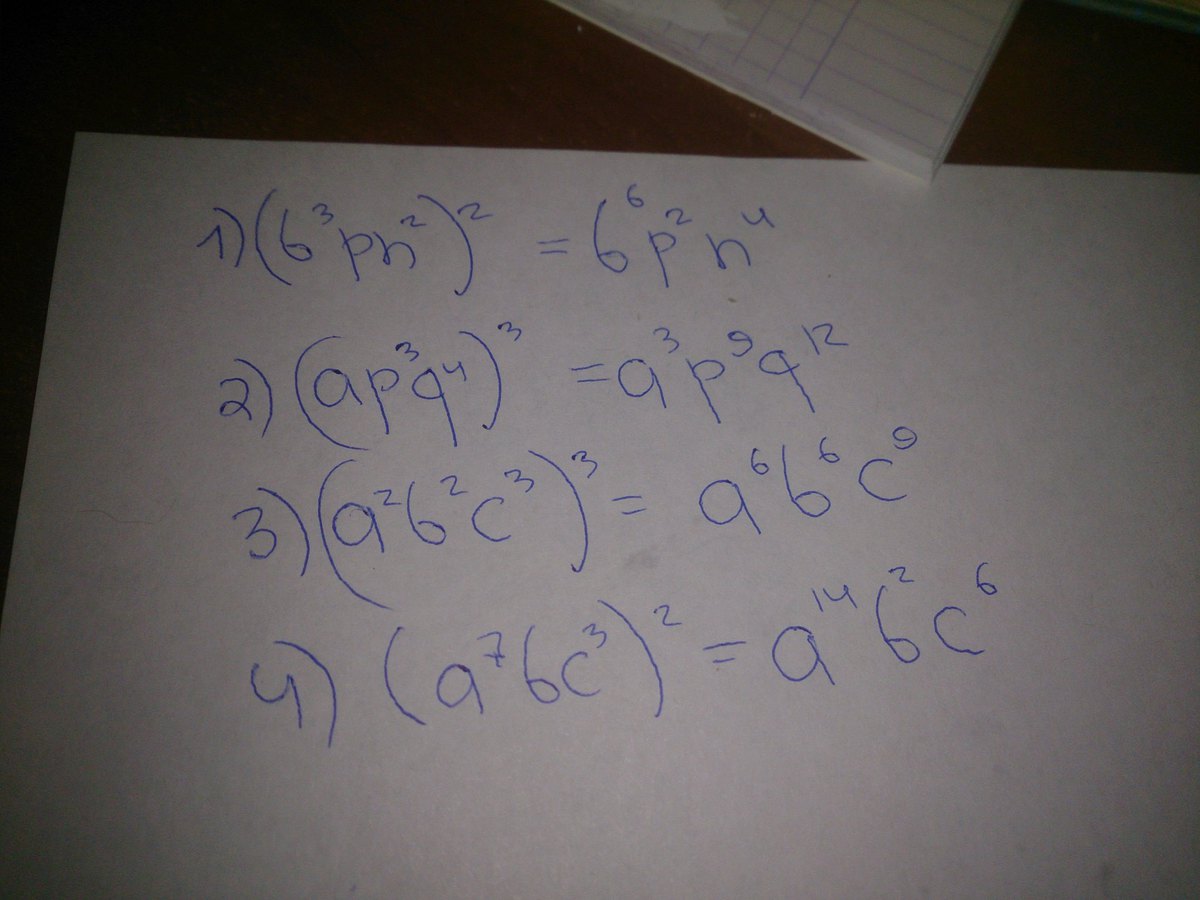 1) (b³pn²)² = b⁶p²n⁴
2) (ap³q⁴)³ = a³p⁹q¹²
3) (a²b²c³)³ = a⁶b⁶c⁹
4) (a⁷bc³)² = a¹⁴b²c⁶